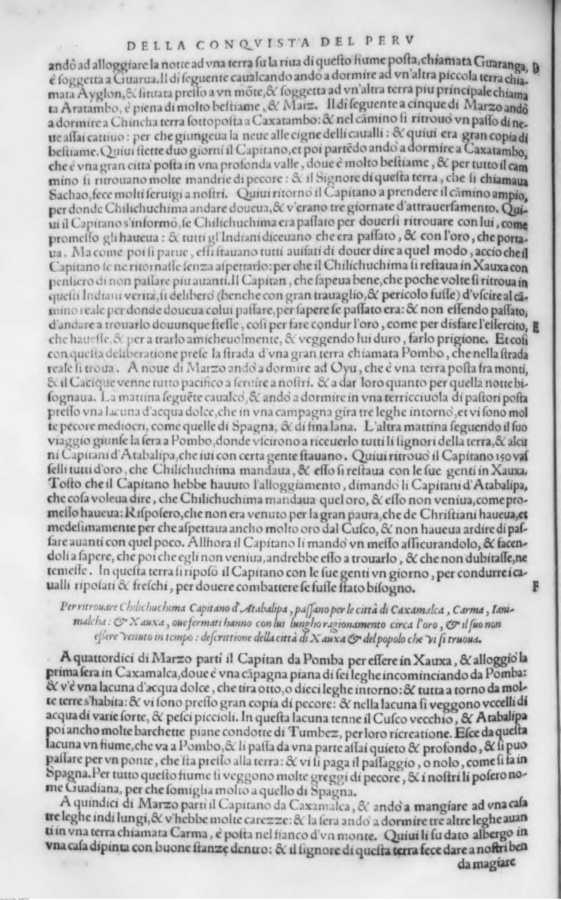 DELLA CONQVISTA DEL PERV
andò ad alloggiare la notte ad vna terra su la riua di questo fiume posta, chiamata Guaranga, D
è soggetta a Guarua. Il dì seguente caualcando andò a dormire ad vn'altra piccola terra chia-
mata Ayglon, & situata presso a vn mōte, & soggetta ad vn'altra terra piu principale chiama
ta Aratambo, è piena di molto bestiame, & Maiz. Il dì seguente a cinque di Marzo andò
a dormire a Chincha terra sottoposta a Caxatambo: & nel cāmino si ritrouò vn passo di ne-
ue assai cattiuo: per che giungeua la neue alle cigne delli caualli: & quiui era gran copia di
bestiame. Quiui stette duo giorni il Capitano, et poi partēdo andò a dormire a Caxatambo,
che è vna gran citta posta in vna profonda valle, doue è molto bestiame, & per tutto il cam
mino si ritrouano molte mandrie di pecore: & il Signore di questa terra, che si chiamaua
Sachao, fece molti seruigi a nostri. Quiui ritornò il Capitano a prendere il cāmino ampio,
per donde Chilichuchima andare doueua, & v'erano tre giornate d'attrauersamento. Qui-
ui il Capitano s'informò, se Chilichuchima era passato per douersi ritrouare con lui, come
promesso gli haueua: & tutti gl'Indiani diceuano che era passato, & con l'oro, che porta-
ua. Ma come poi si parue, essi stauano tutti auisati di douer dire a quel modo, acciò che il
Capitano se ne ritornasse senza aspettarlo: per che il Chilichuchima si restaua in Xauxa con
pensiero di non passare piu auanti. Il Capitan, che sapeua bene, che poche volte si ritroua in
questi Indiani verità, si deliberò (benche con gran trauaglio, & pericolo fusse) d'vscire al cā-
mino reale per donde doueua colui passare, per sapere se passato era: & non essendo passato,
d'andare a trouarlo douunque stesse, così per fare condur l'oro, come per disfare l'essercito, E
che hauesse, & per a trarlo amicheuolmente, & veggendo lui duro, farlo prigione. Et così
con questa deliberatione prese la strada d'vna gran terra chiamata Pombo, che nella strada
reale si troua. A noue di Marzo andò a dormire ad Oyu, che è vna terra posta fra monti,
& il Cacique venne tutto pacifico a seruire a nostri. & a dar loro quanto per quella notte bi-
sognaua. La mattina seguēte caualcò, & andò a dormire in vna terricciuola di pastori posta
presso vna lacuna d'acqua dolce, che in vna campagna gira tre leghe intorno, et vi sono mol
te pecore mediocri, come quelle di Spagna, & di fina lana. L'altra mattina seguendo il suo
viaggio giunse la sera a Pombo, donde vscirono a riceuerlo tutti li signori della terra, & alcu
ni Capitani d'Atabalipa, che iui con certa gente stauano. Quiui ritrouò il Capitano 150 va
selli tutti d'oro, che Chilichuchima mandaua, & esso si restaua con le sue genti in Xauxa.
Tosto che il Capitano hebbe hauuto l'alloggiamento, dimandò li Capitani d'Atabalipa,
che cosa voleua dire, che Chilichuchima mandaua quel oro, & esso non veniua, come pro-
messo haueua: Risposero, che non era venuto per la gran paura, che de Christiani haueua, et
medesimamente per che aspettaua ancho molto oro dal Cusco, & non haueua ardire di pas-
sare auanti con quel poco. Allhora il Capitano li mandò vn messo assicurandolo, & facen-
doli a sapere, che poi che egli non veniua, andrebbe esso a trouarlo, & che non dubitasse, ne
temesse. In questa terra si riposò il Capitano con le sue genti vn giorno, per condurre i ca-
ualli riposati & freschi, per douere combattere se fusse stato bisogno. F
Per ritrouare Chilichuchima Capitano d'Atabalipa, passano per le città di Caxamalca, Carma, Ianu-
malcha: & Xauxa, oue fermati hanno con lui lungho ragionamento circa l'oro, & il suo non
essere venuto in tempo: descrittione della città di Xauxa & del popolo che vi si truoua.
A quattordici di Marzo partì il Capitan da Pomba per essere in Xauxa, & alloggiò la
prima sera in Caxamalca, doue è vna cāpagna piana di sei leghe incominciando da Pomba:
& v'è vna lacuna d'acqua dolce, che tira otto, o dieci leghe intorno: & tutta a torno da mol-
te terre s'habita: & vi sono presso gran copia di pecore: & nella lacuna si veggono vccelli di
acqua di varie sorte, & pesci piccioli. In questa lacuna tenne il Cusco vecchio, & Atabalipa
poi ancho molte barchette piane condotte di Tumbez, per loro ricreatione. Esce da questa
lacuna vn fiume, che va a Pombo, & li passa da vna parte assai quieto & profondo, & si puo
passare per vn ponte, che sta presso alla terra: & vi si paga il passaggio, o nolo, come si fa in
Spagna. Per tutto questo fiume si veggono molte greggi di pecore, & i nostri li posero no-
me Guadiana, per che somiglia molto a quello di Spagna.
A quindici di Marzo partì il Capitano da Caxamalca, & andò a mangiare ad vna casa
tre leghe indi lungi, & v'hebbe molte carezze: & la sera andò a dormire tre altre leghe auan
ti in vna terra chiamata Carma, è posta nel fianco d'vn monte. Quiui li fu dato albergo in
vna casa dipinta con buone stanze dentro: & il signore di questa terra fece dare a nostri ben
da magiare